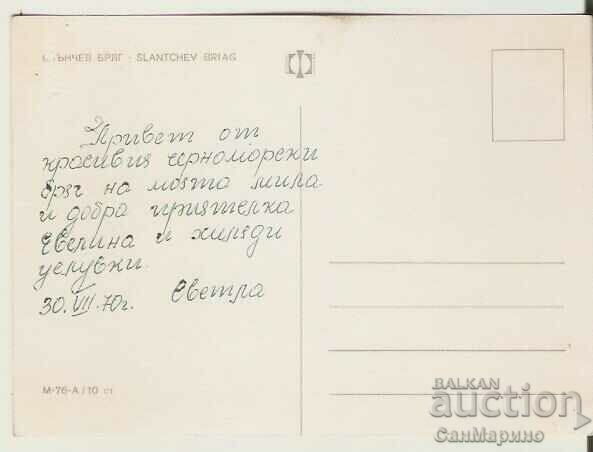 СЛЪНЧЕВ БРЯГ - SLANTCHEV BRIAG
Привет от
красивия черноморски
бряг на моята мила
и добра приятелка
Евелина и хиляди
целувки.
30.VII.70г. Светла
М-76-А / 10 ст
BALKAN
auction
СанМарино